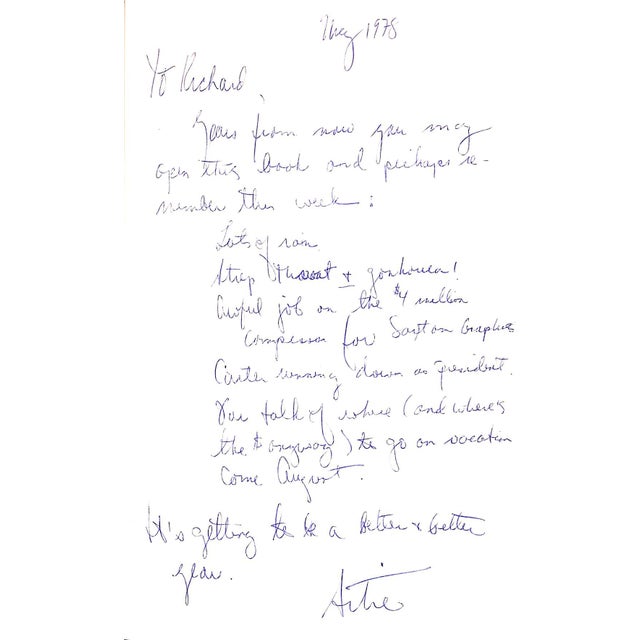 May 1978
To Richard,
Years from now you may
open this book and perhaps re-
member this week:
Lots of rain
Strep throat + gonhorea!
Awful job on the $4 million
for Saxton Graphics
Carter running down as president.
Our talk of where (and where's
the $ anyway) to go on vacation
come August.
It's getting to be a better & better
year.
Artie